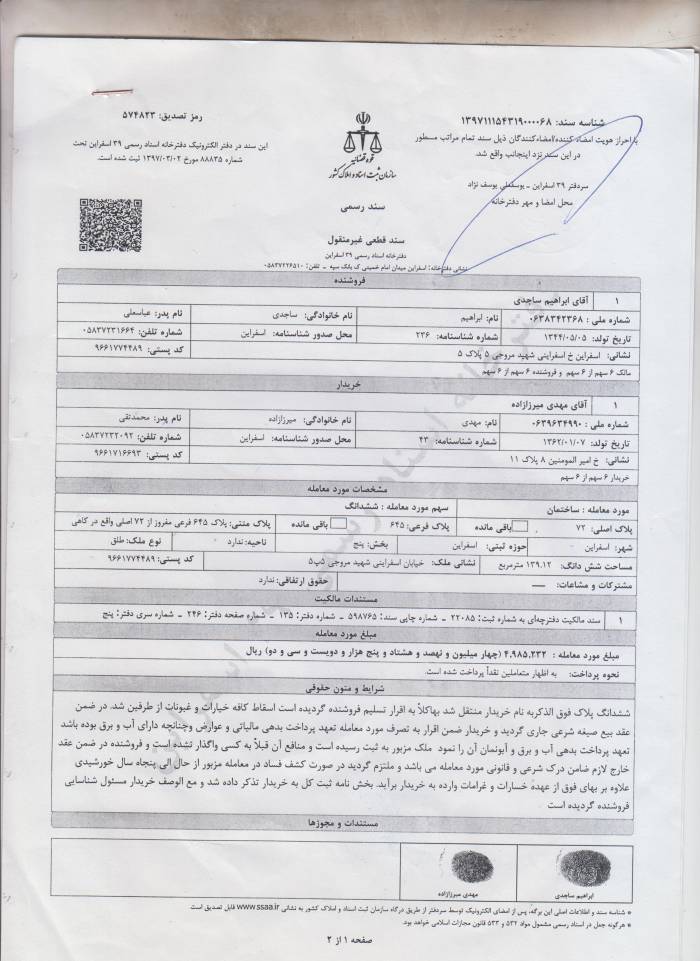 شناسه سند: ۱۳۹۷۱۱۱۵۴۳۱۹۰۰۰۰۶۸
رمز تصدیق: ۵۷۴۸۲۳
با احراز هویت امضاء کننده/امضاءکنندگان ذیل سند تمام مراتب مسطور
در این سند نزد اینجانب واقع شد.
سردفتر ۳۹ اسفراین - یوسفعلی یوسف نژاد
محل امضا و مهر دفترخانه
این سند در دفتر الکترونیک دفترخانه اسناد رسمی ۳۹ اسفراین تحت
شماره ۸۸۸۳۵ مورخ ۱۳۹۷/۰۳/۰۲ ثبت شده است.
قوه قضائیه
سازمان ثبت اسناد و املاک کشور
سند رسمی
سند قطعی غیرمنقول
دفترخانه اسناد رسمی ۳۹ اسفراین
نشانی دفترخانه: اسفراین میدان امام خمینی ک بانک سپه - تلفن: ۰۵۸۳۷۲۲۶۵۱۰
فروشنده
۱ آقای ابراهیم ساجدی
شماره ملی : ۰۶۳۸۳۴۲۳۶۸ نام: ابراهیم نام خانوادگی: ساجدی نام پدر: عباسعلی
تاریخ تولد: ۱۳۴۴/۰۵/۰۵ شماره شناسنامه: ۲۳۶ محل صدور شناسنامه: اسفراین شماره تلفن: ۰۵۸۳۷۲۳۱۶۶۴
نشانی: اسفراین خ اسفراینی شهید مروجی ۵ پلاک ۵ کد پستی: ۹۶۶۱۷۷۴۴۸۹
مالک ۶ سهم از ۶ سهم و فروشنده ۶ سهم از ۶ سهم
خریدار
۱ آقای مهدی میرزازاده
شماره ملی : ۰۶۳۹۶۳۴۹۹۰ نام: مهدی نام خانوادگی: میرزازاده نام پدر: محمدتقی
تاریخ تولد: ۱۳۶۲/۰۱/۰۷ شماره شناسنامه: ۴۳ محل صدور شناسنامه: اسفراین شماره تلفن: ۰۵۸۳۷۲۳۲۰۹۲
نشانی: خ امیر المومنین ۸ پلاک ۱۱ کد پستی: ۹۶۶۱۷۱۶۶۹۳
خریدار ۶ سهم از ۶ سهم
مشخصات مورد معامله
مورد معامله : ساختمان سهم مورد معامله : ششدانگ
پلاک اصلی: ۷۲ باقی مانده پلاک فرعی: ۶۴۵ باقی مانده پلاک متنی: پلاک ۶۴۵ فرعی مفروز از ۷۲ اصلی واقع در کاهی
شهر: اسفراین حوزه ثبتی: اسفراین بخش: پنج ناحیه: ندارد نوع ملک: طلق
مساحت شش دانگ: ۱۳۹.۱۲ مترمربع نشانی ملک: خیابان اسفراینی شهید مروجی ۵پ۵ کد پستی: ۹۶۶۱۷۷۴۴۸۹
مشترکات و مشاعات: — حقوق ارتفاقی: ندارد
مستندات مالکیت
۱ سند مالکیت دفترچه‌ای به شماره ثبت: ۲۲۰۸۵ - شماره چاپی سند: ۵۹۸۷۶۵ - شماره دفتر: ۱۳۵ - شماره صفحه دفتر: ۲۴۶ - شماره سری دفتر: پنج
مبلغ مورد معامله
مبلغ مورد معامله : ۴،۹۸۵،۲۳۲ (چهار میلیون و نهصد و هشتاد و پنج هزار و دویست و سی و دو) ریال
نحوه پرداخت: به اظهار متعاملین نقداً پرداخت شده است.
شرایط و متون حقوقی
ششدانگ پلاک فوق الذکربه نام خریدار منتقل شد بهاکلاً به اقرار تسلیم فروشنده گردیده است اسقاط کافه خیارات و غبونات از طرفین شد. در ضمن
عقد بیع صیغه شرعی جاری گردید و خریدار ضمن اقرار به تصرف مورد معامله تعهد پرداخت بدهی مالیاتی و عوارض وچنانچه دارای آب و برق بوده باشد
تعهد پرداخت بدهی آب و برق و آبونمان آن را نمود ملک مزبور به ثبت رسیده است و منافع آن قبلاً به کسی واگذار نشده است و فروشنده در ضمن عقد
خارج لازم ضامن درک شرعی و قانونی مورد معامله می باشد و ملتزم گردید در صورت کشف فساد در معامله مزبور از حال الی پنجاه سال خورشیدی
علاوه بر بهای فوق از عهده خسارات و غرامات وارده به خریدار برآید. بخش نامه ثبت کل به خریدار تذکر داده شد و مع الوصف خریدار مسئول شناسایی
فروشنده گردیده است
مستندات و مجوزها
ابراهیم ساجدی
مهدی میرزازاده
* شناسه سند و اطلاعات اصلی این برگه، پس از امضای الکترونیک توسط سردفتر از طریق درگاه سازمان ثبت اسناد و املاک کشور به نشانی www.ssaa.ir قابل تصدیق است.
* هرگونه جعل در اسناد رسمی مشمول مواد ۵۳۲ و ۵۳۳ قانون مجازات اسلامی خواهد بود.
صفحه ۱ از ۲